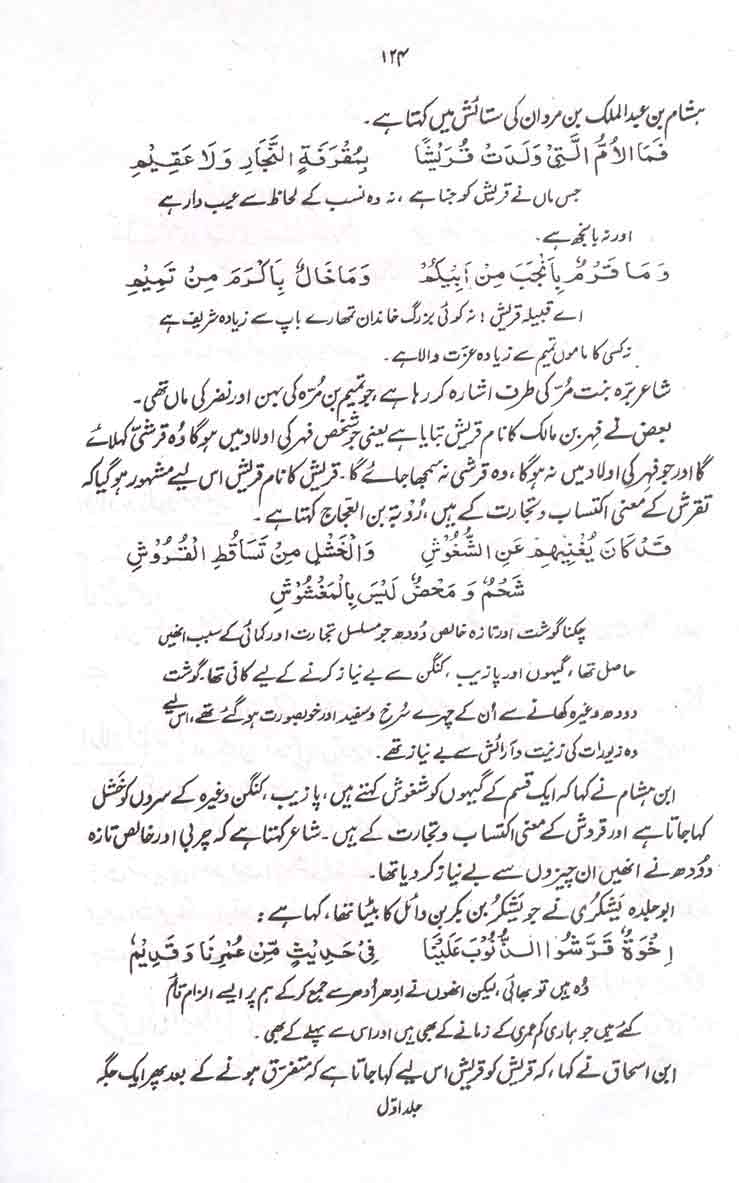 ۱۲۴
ہشام بن عبدالملک بن مروان کی ستائش میں کہتا ہے۔
فَمَا الْاُمُّ الَّتِیْ وَلَدَتْ قُرَیْشًا بِمُقْرَفَةِ النِّجَارِ وَلَا عَقِیْمٖ
جس ماں نے قریش کو جنا ہے ، نہ وہ نسب کے لحاظ سے عیب دار ہے
اور نہ بانجھ ہے۔
وَمَا قَرْمٌ بِاَنْجَبَ مِنْ اَبِیْکُمْ وَمَا خَالٌ بِاَکْرَمَ مِنْ تَمِیْمٖ
اے قبیلہ قریش! نہ کوئی بزرگ خاندان تمھارے باپ سے زیادہ شریف ہے
نہ کسی کا ماموں تمیم سے زیادہ عزت والا ہے۔
شاعر بَرّہ بنت مُرّ کی طرف اشارہ کر رہا ہے ، جو تمیم بن مُرّہ کی بہن اور نضر کی ماں تھی۔
بعض نے فِہر بن مالک کا نام قریش بتایا ہے یعنی جو شخص فہر کی اولاد میں ہوگا وُہ قرشیّ کہلائے
گا اور جو فہر کی اولاد میں نہ ہوگا ، وہ قرشی نہ سمجھا جائے گا۔ قریش کا نام قریش اس لیے مشہور ہو گیا کہ
تقرش کے معنی اکتساب و تجارت کے ہیں ، رُؤبۃ بن العجاج کہتا ہے۔
قَدْ کَانَ یُغْنِیْھِمْ عَنِ الشُّغُوْشِ وَالْخَشْلِ مِنْ تَسَاقُطِ الْقُرُوْشِ
شَحْمٌ وَ مَحْضٌ لَیْسَ بِالْمَغْشُوْشِ
چکنا گوشت اور تازہ خالص دُودھ جو مسلسل تجارت اور کمائی کے سبب انھیں
حاصل تھا ، گیہوں اور پازیب ، کنگن سے بے نیاز کرنے کے لیے کافی تھا۔ گوشت
دودھ وغیرہ کھانے سے اُن کے چہرے سُرخ و سفید اور خوبصورت ہو گئے تھے، اس لیے
وہ زیورات کی زینت و آرائش سے بے نیاز تھے۔
ابن ہشام نے کہا کہ ایک قسم کے گیہوں کو شغوش کہتے ہیں ، پازیب ، کنگن وغیرہ کے سروں کو خَشْل
کہا جاتا ہے اور قروش کے معنی اکتساب و تجارت کے ہیں۔ شاعر کہتا ہے کہ چربی اور خالص تازہ
دودھ نے انھیں ان چیزوں سے بے نیاز کر دیا تھا۔
ابو جلدہ یَشْکُری نے جو یَشْکُرْ بن بکر بن وائل کا بیٹا تھا ، کہا ہے :
اِخْوَةٌ قَرَّشُوا الذُّنُوْبَ عَلَیْنَا فِیْ حَدِیْثٍ مِّنْ عُمْرِنَا وَ قَدِیْمٖ
وُہ ہیں تو بھائی ، لیکن انھوں نے اِدھر اُدھر سے جمع کر کے ہم پر ایسے الزام قائم
کئے ہیں جو ہماری کم عمری کے زمانے کے بھی ہیں اور اس سے پہلے کے بھی۔
ابن اسحاق نے کہا ، کہ قریش کو قریش اس لیے کہا جاتا ہے کہ متفرق ہونے کے بعد پھر ایک جگہ
جلد اوّل